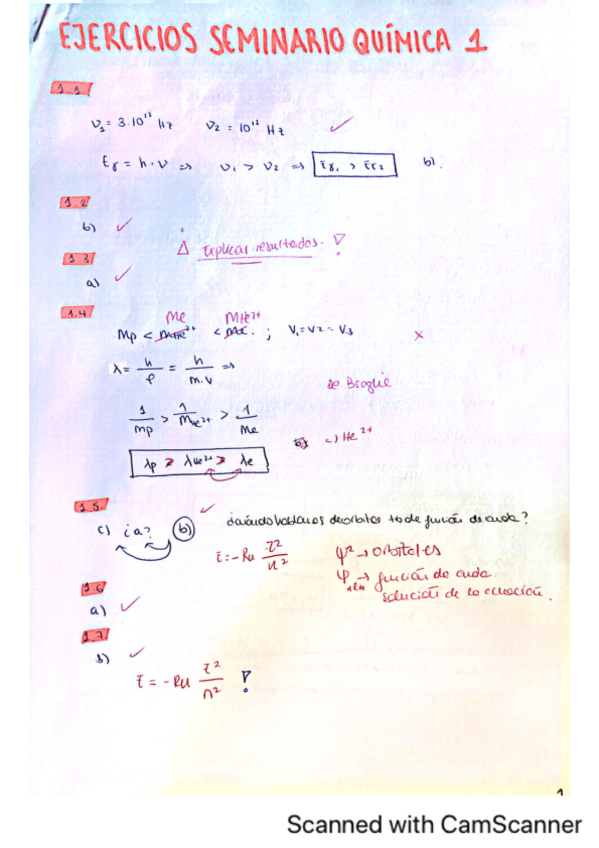 EJERCICIOS SEMINARIO QUÍMICA 1
1.1
ν₁ = 3·10¹² Hz ν₂ = 10¹² Hz ✓
Eγ = h·ν ⇒ ν₁ > ν₂ ⇒ Eγ₁ > Eγ₂ b).
1.2
b) ✓
Explicar resultados.
1.3
a) ✓
1.4
Me MHe²⁺
Mp < MHe²⁺ < Me. ; V₁=V₂=V₃ x
λ = h/p = h/m.v ⇒
de Broglie
1/mp > 1/MHe²⁺ > 1/Me
c) He²⁺
λp > λHe²⁺ > λe
1.5. ✓
c) ¿a? b) ¿cuándo hablamos de orbitales todo de función de onda?
E = -RH Z²/n² ψ² → orbitales
ψ → función de onda.
solución de la ecuación.
1.6
a) ✓
1.7
b) ✓
E = -RH Z²/n²
1
Scanned with CamScanner